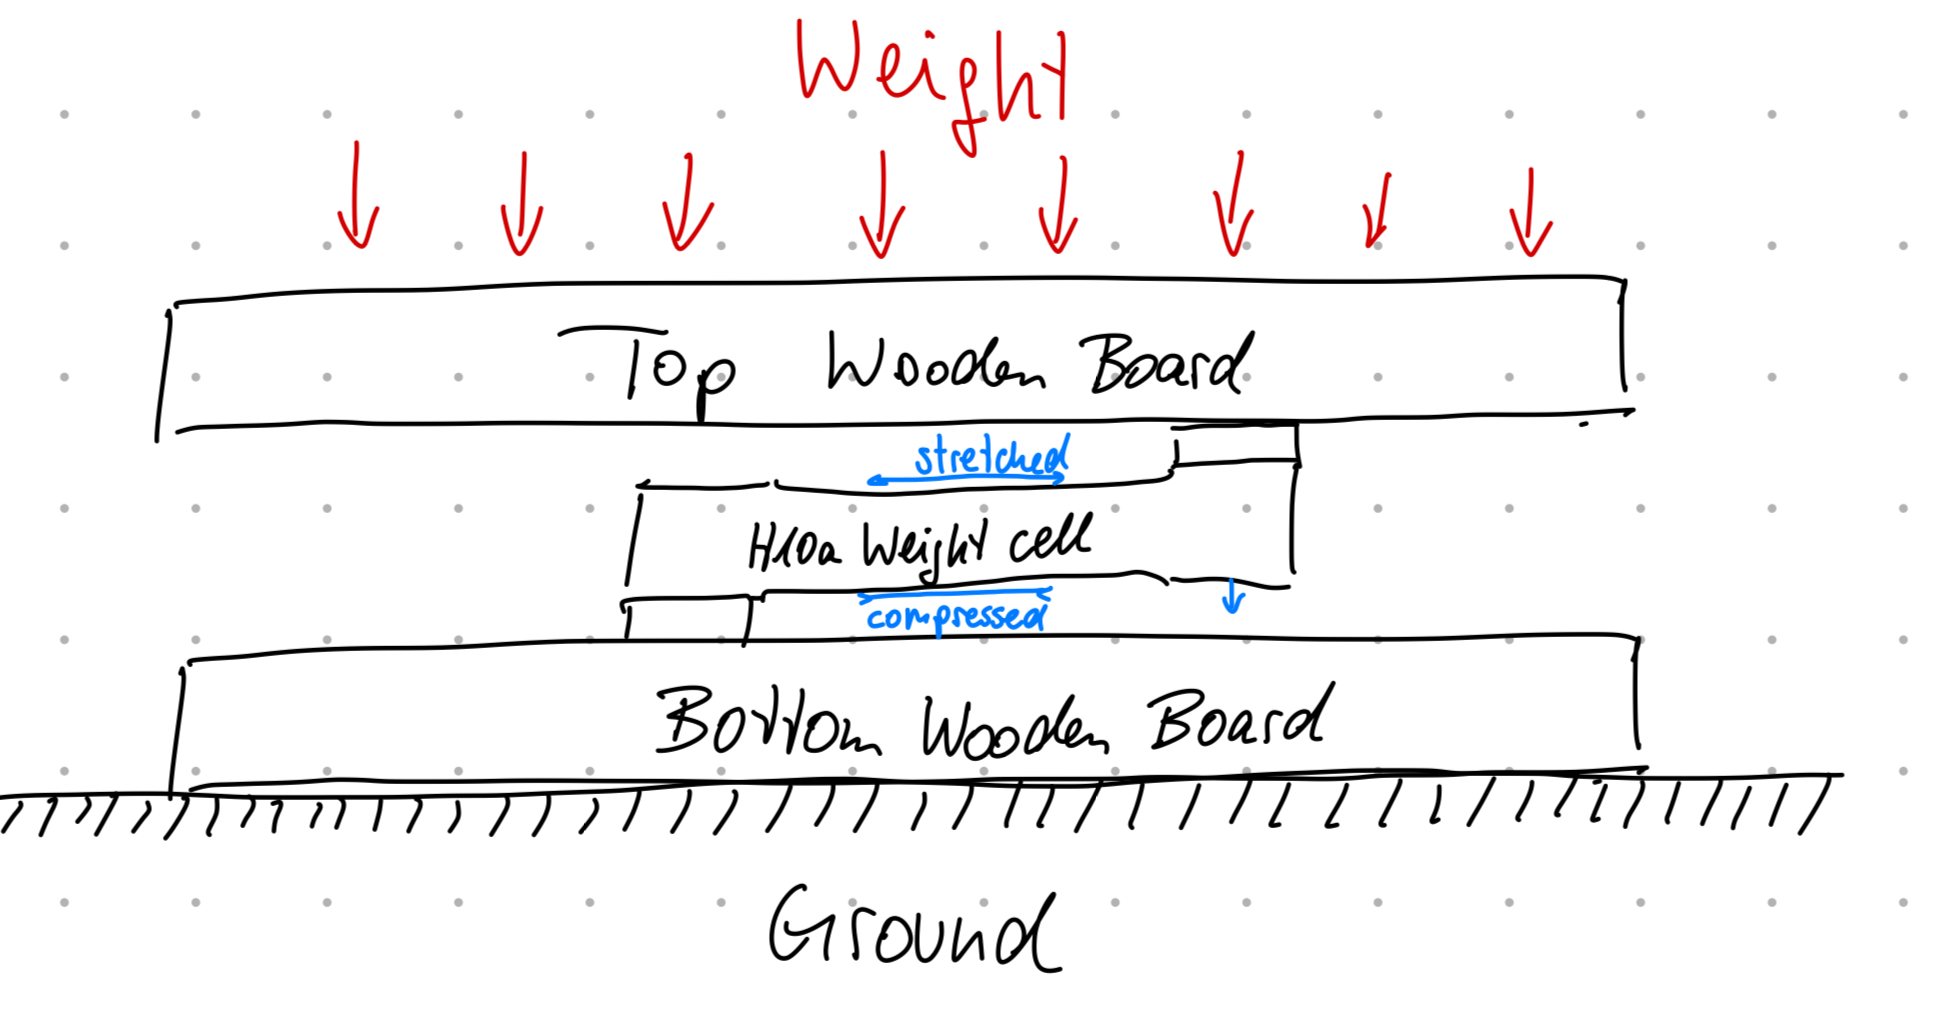 Weight
Top Wooden Board
stretched
H10a Weight cell
compressed
Bottom Wooden Board
Ground